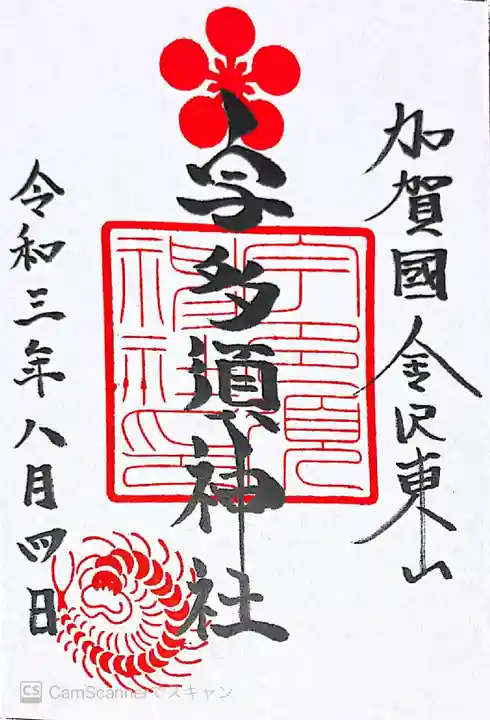 加賀國金沢東山
宇多須神社
令和三年八月四日
CS CamScannerでスキャン